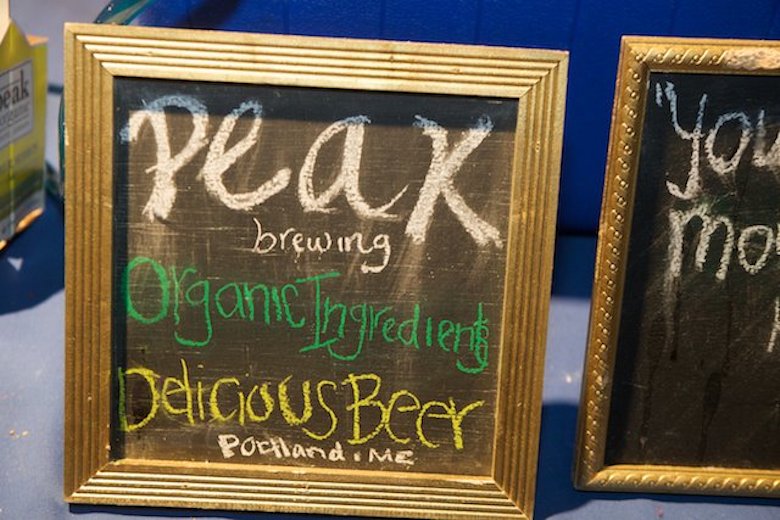 Peak
brewing
Organic Ingredients
Delicious Beer
Portland, ME
"You
eak